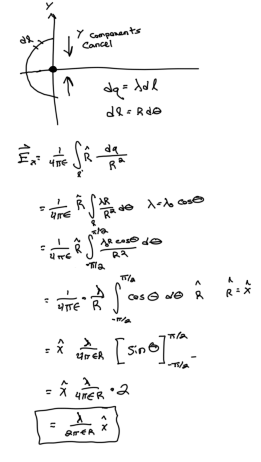 Y
dl
Y components
Cancel
dq = λdl
dl = R dθ
E⃗ₓ = 1/4πε ∫_R R̂ dq/R²
= 1/4πε R̂ ∫_R λR/R² dθ λ = λ₀ cosθ
= 1/4πε R̂ ∫_{-π/2}^{π/2} λR cosθ/R² dθ
= 1/4πε · λ/R ∫_{-π/2}^{π/2} cosθ dθ R̂ R̂ = x̂
= x̂ λ/4πεR [sinθ]_{-π/2}^{π/2}
= x̂ λ/4πεR · 2
= λ/2πεR x̂